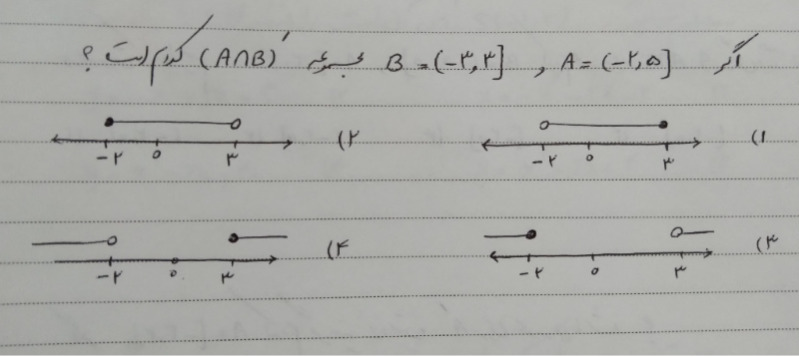 اگر A = (-۲, ۵] , B = (-۳, ۳] مجموعه (A∩B)′ کدام است ؟
۱) -۲ ۰ ۳
۲) -۲ ۰ ۳
۳) -۲ ۰ ۳
۴) -۲ ۰ ۳